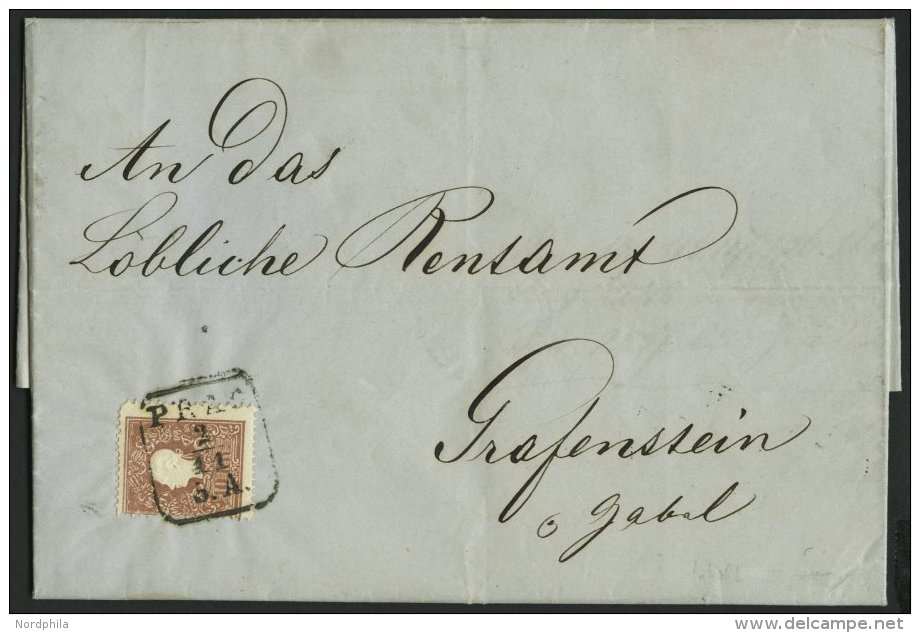 An das
Löbliche Rentamt
PRAG
2
11
5.A.
Grafenstein
Gabel
Nordphila
delcampe.net